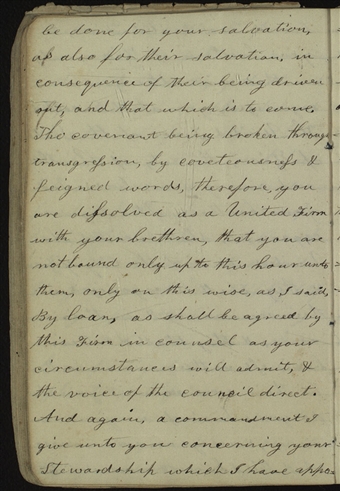 be done for your salvation,
as also for their salvation, in
consequence of their being driven
out, and that which is to come.
The covenant being broken through
transgression, by covetousness &
feigned words, therefore, you
are dissolved as a United Firm
with your brethren, that you are
not bound only up to this hour unto
them, only on this wise, as, I said,
By loan, as shall be agreed by
this Firm in counsel as your
circumstances will admit, &
the voice of the council direct.
And again, a commandment I
give unto you concerning your
Stewardship which I have appo-